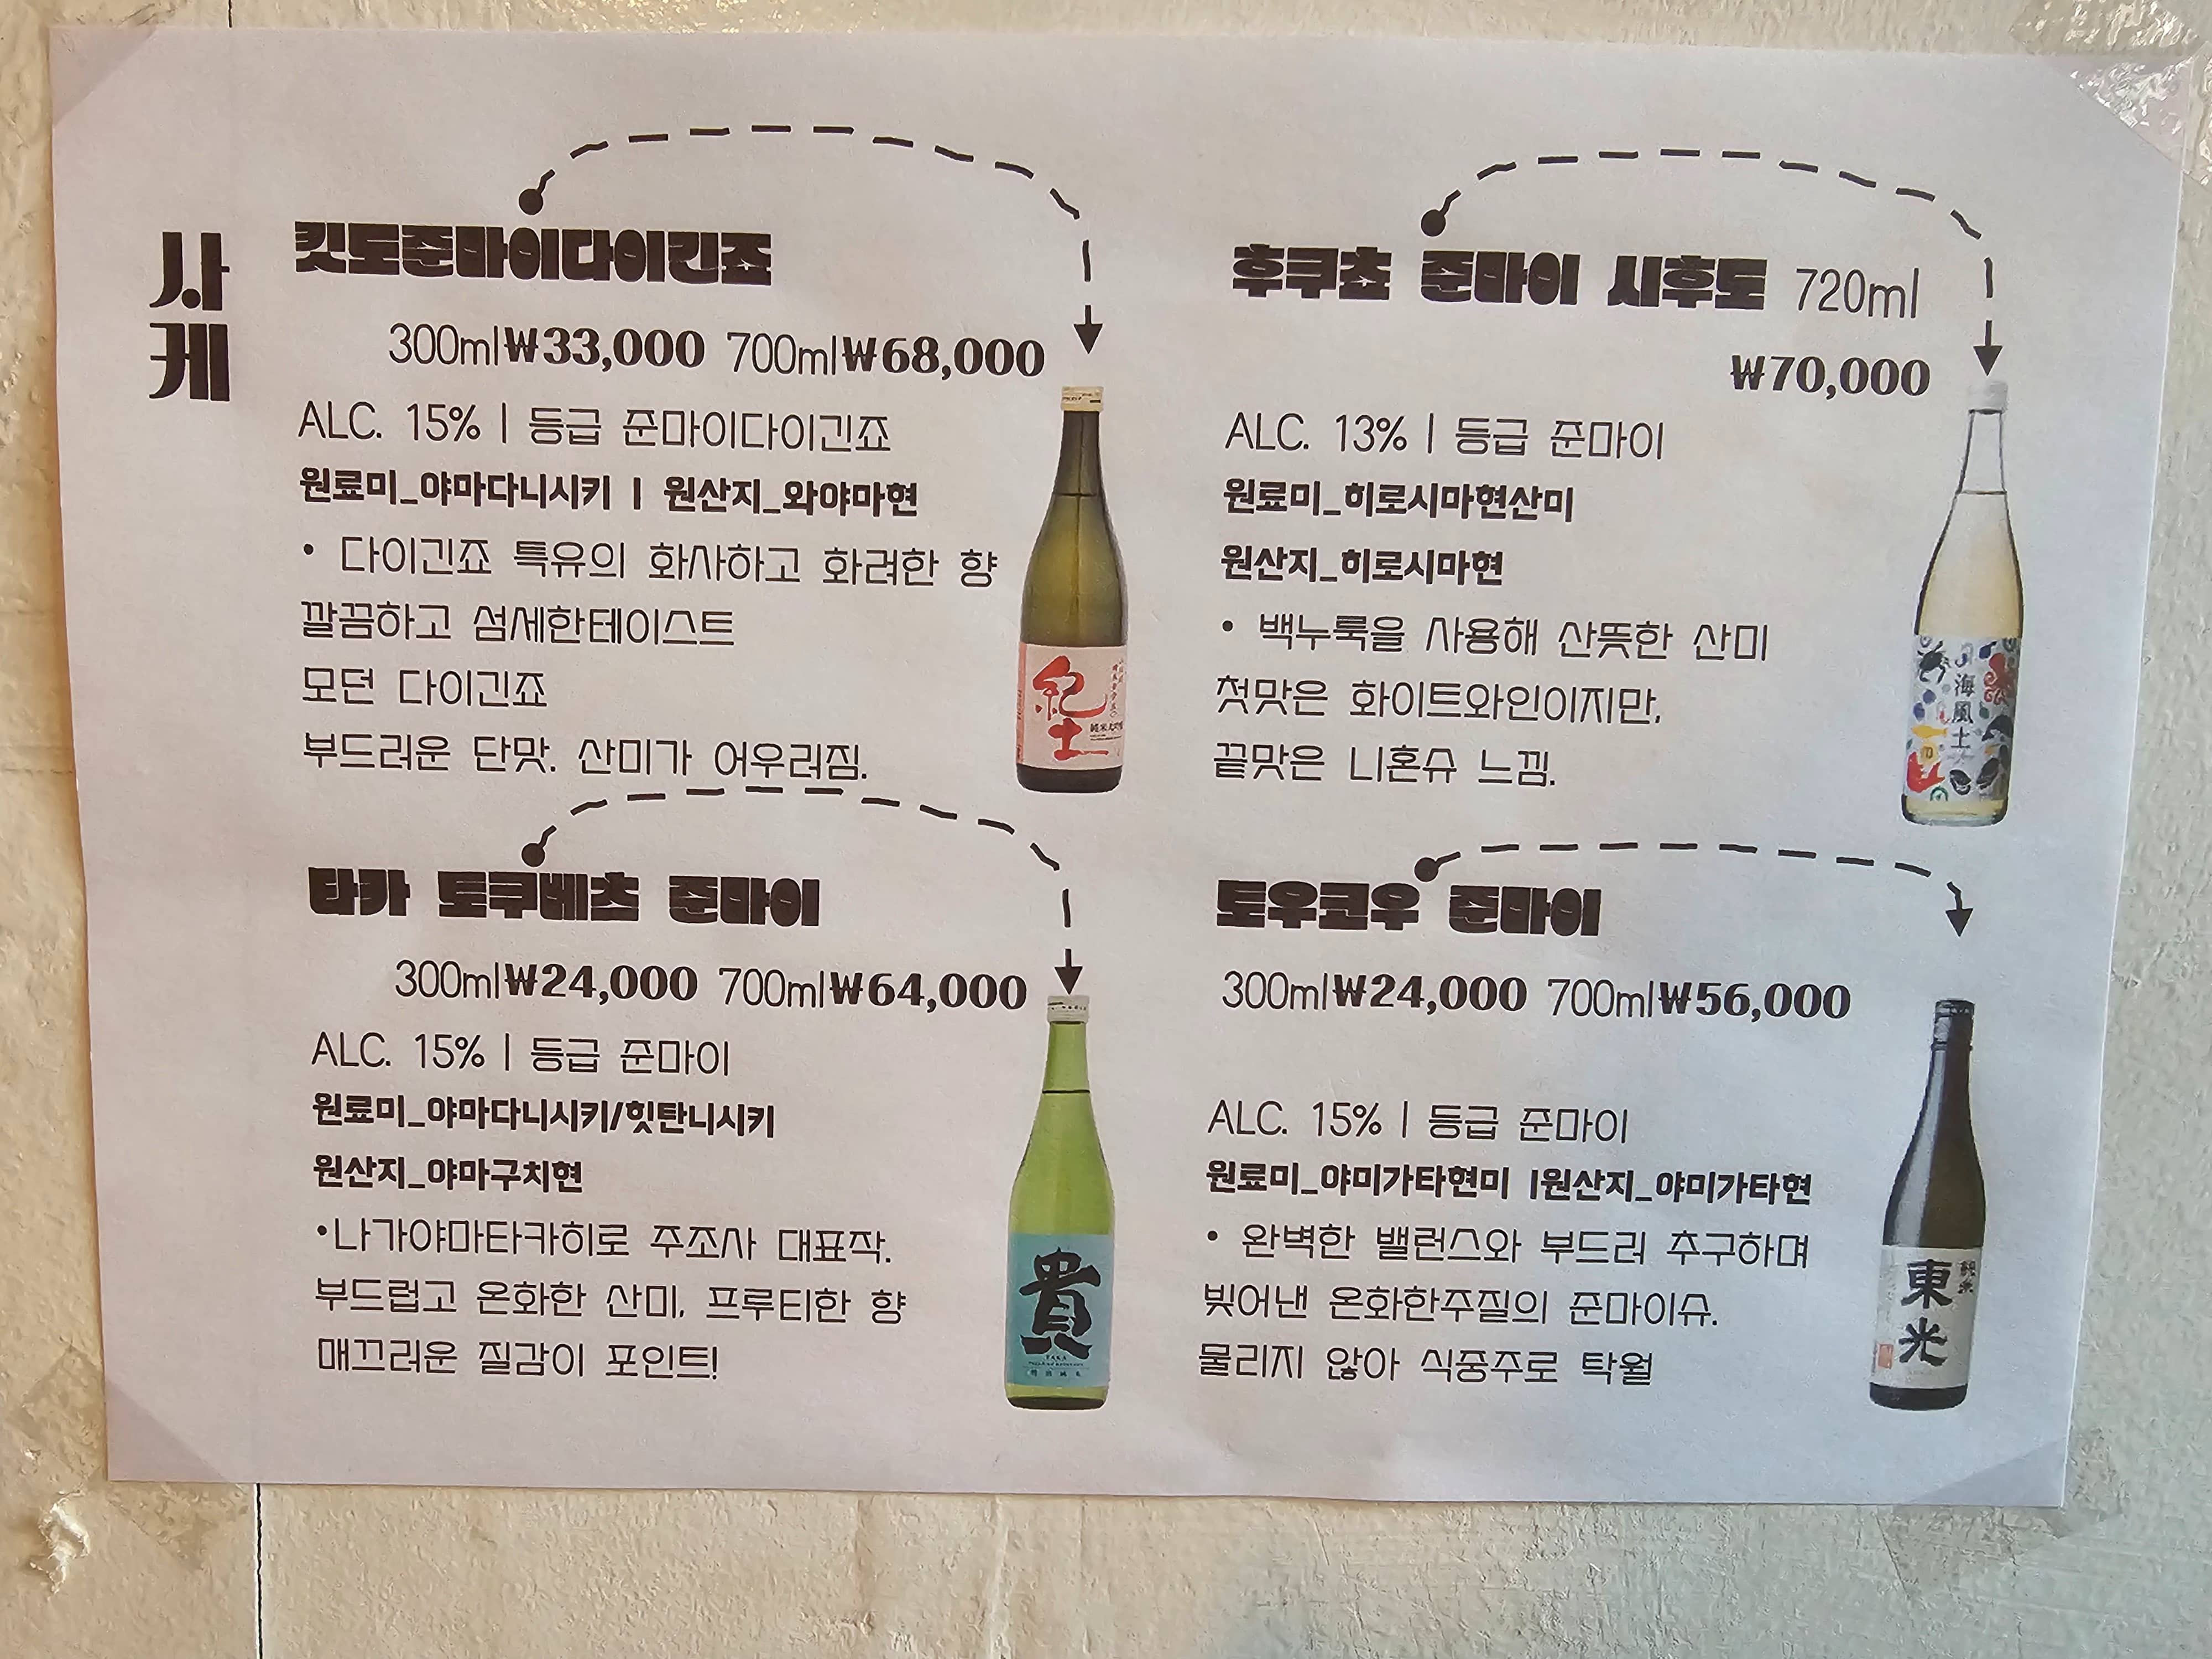 사케
킷도준마이다이긴죠
300ml₩33,000 700ml₩68,000
ALC. 15% | 등급 준마이다이긴죠
원료미_야마다니시키 | 원산지_와야마현
• 다이긴죠 특유의 화사하고 화려한 향
깔끔하고 섬세한테이스트
모던 다이긴죠
부드러운 단맛. 산미가 어우러짐.
紀土
純米大吟醸
후쿠쵸 준마이 시후도 720ml
₩70,000
ALC. 13% | 등급 준마이
원료미_히로시마현산미
원산지_히로시마현
• 백누룩을 사용해 산뜻한 산미
첫맛은 화이트와인이지만,
끝맛은 니혼슈 느낌.
海風土
타카 토쿠베츠 준마이
300ml₩24,000 700ml₩64,000
ALC. 15% | 등급 준마이
원료미_야마다니시키/힛탄니시키
원산지_야마구치현
•나가야마타카히로 주조사 대표작.
부드럽고 온화한 산미, 프루티한 향
매끄러운 질감이 포인트!
貴
TAKA
特別純米
토우코우 준마이
300ml₩24,000 700ml₩56,000
ALC. 15% | 등급 준마이
원료미_야미가타현미 |원산지_야미가타현
• 완벽한 밸런스와 부드러 추구하며
빚어낸 온화한주질의 준마이슈.
물리지 않아 식중주로 탁월
純米
東光